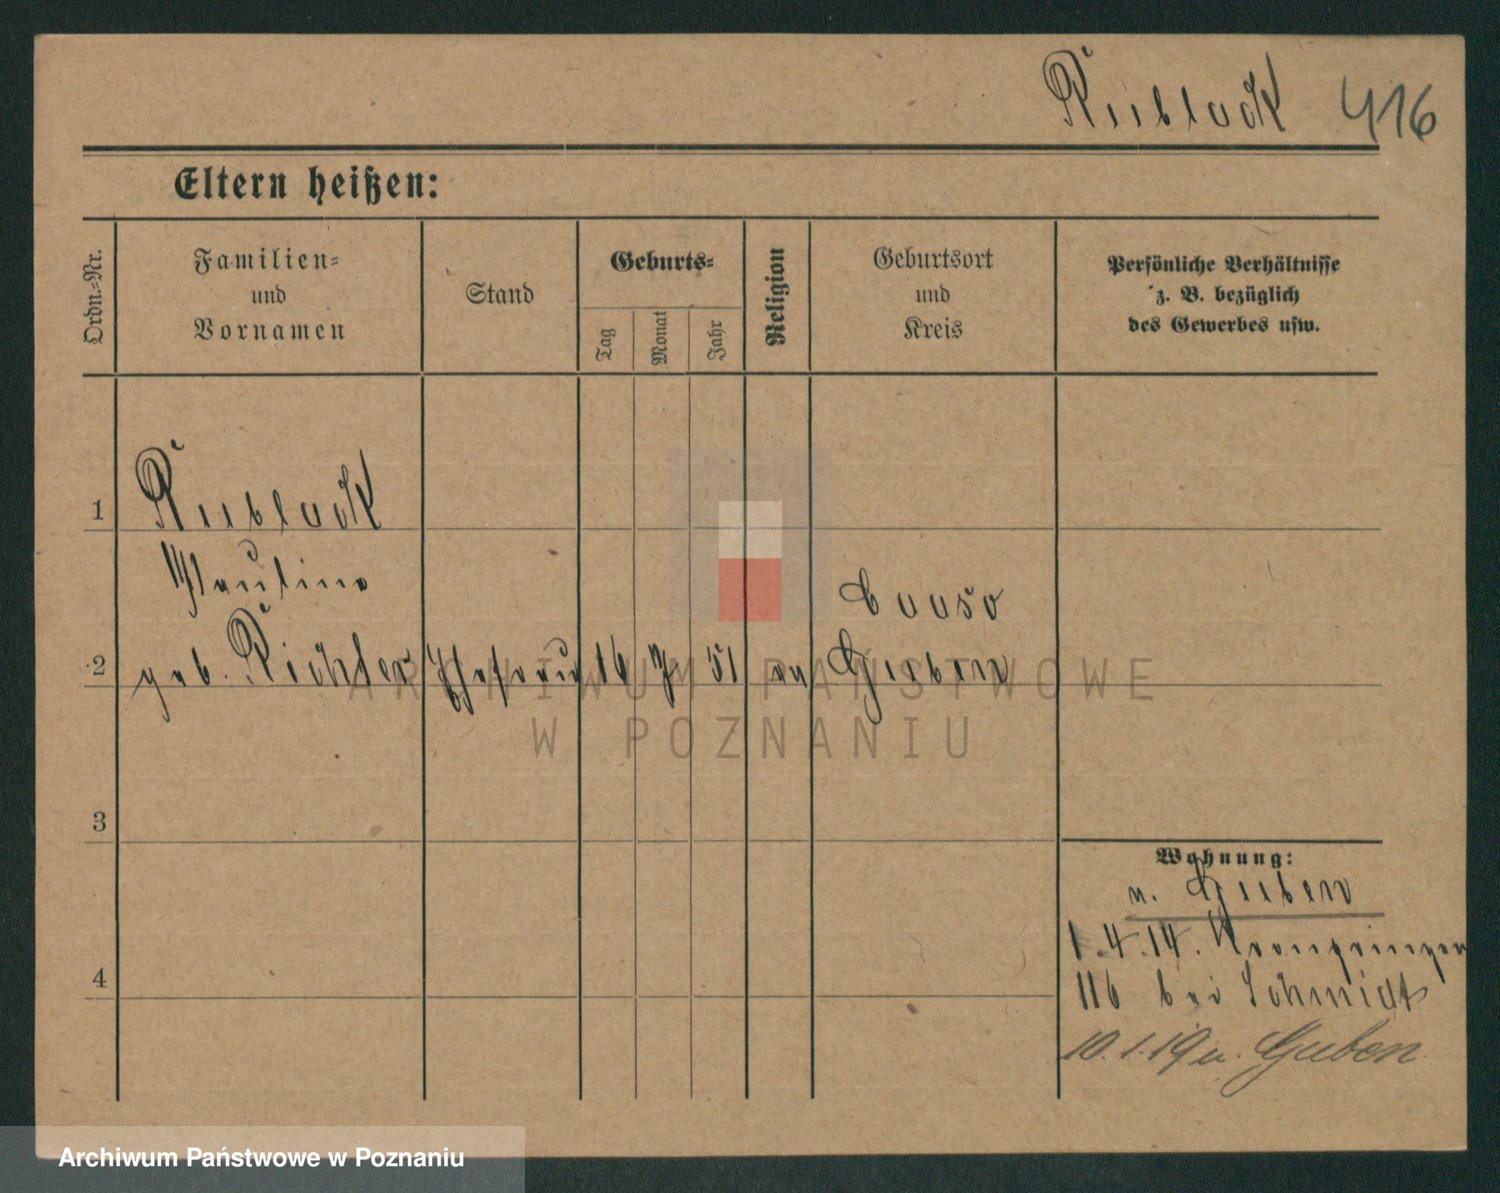 Rublack 416
Eltern heißen:
Ordn.-Nr.
Familien-
und
Vornamen
Stand
Geburts-
Tag
Monat
Jahr
Religion
Geburtsort
und
Kreis
Persönliche Verhältnisse
z. B. bezüglich
des Gewerbes usw.
1
Rublack
Pauline
2
geb. Richter Ehefrau 16 7 51 ev Guben
3
4
Wohnung:
n. Guben
1.4.14. Kronprinzen
116 bei Schmidt
10.1.19 n. Guben
ARCHIWUM PAŃSTWOWE
W POZNANIU
Archiwum Państwowe w Poznaniu